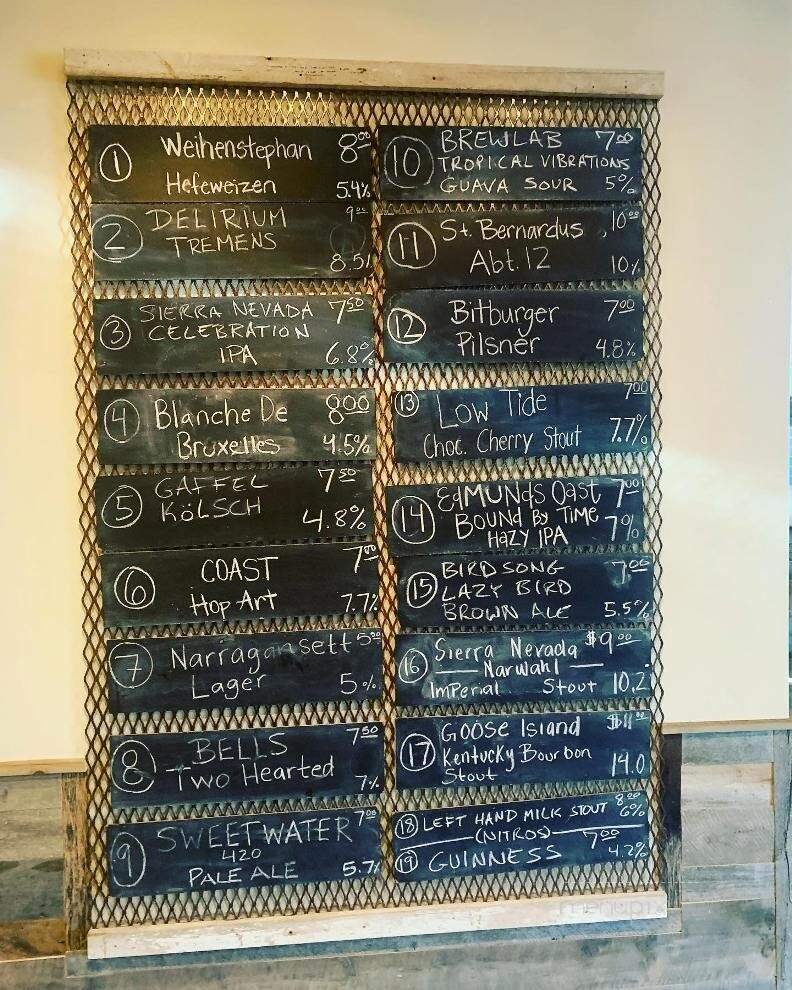 1 Weihenstephan 8.00
Hefeweizen 5.4%
2 DELIRIUM 9.00
TREMENS
8.5%
3 SIERRA NEVADA 7.50
CELEBRATION
IPA 6.8%
4 Blanche De 8.00
Bruxelles 4.5%
5 GAFFEL 7.50
KÖLSCH 4.8%
6 COAST 7.00
Hop Art 7.7%
7 Narragansett 5.00
Lager 5%
8 BELLS 7.50
Two Hearted 7%
9 SWEETWATER 7.00
420
PALE ALE 5.7%
10 BREWLAB 7.00
TROPICAL VIBRATIONS
GUAVA SOUR 5%
11 St. Bernardus 10.00
Abt. 12 10%
12 Bitburger 7.00
Pilsner 4.8%
13 Low Tide 7.00
Choc. Cherry Stout 7.7%
14 EdMUNds Oast 7.00
BOUNd By TIME 7%
HAZY IPA
15 BIRDSONG 7.00
LAZY BIRD
BROWN ALE 5.5%
16 Sierra Nevada $9.00
Narwahl
Imperial Stout 10.2
17 GOOSE Island
Kentucky Bourbon
Stout 14.0
18 LEFT HAND MILK STOUT 8.00
6%
(NITROS)
19 GUINNESS 7.00
4.2%